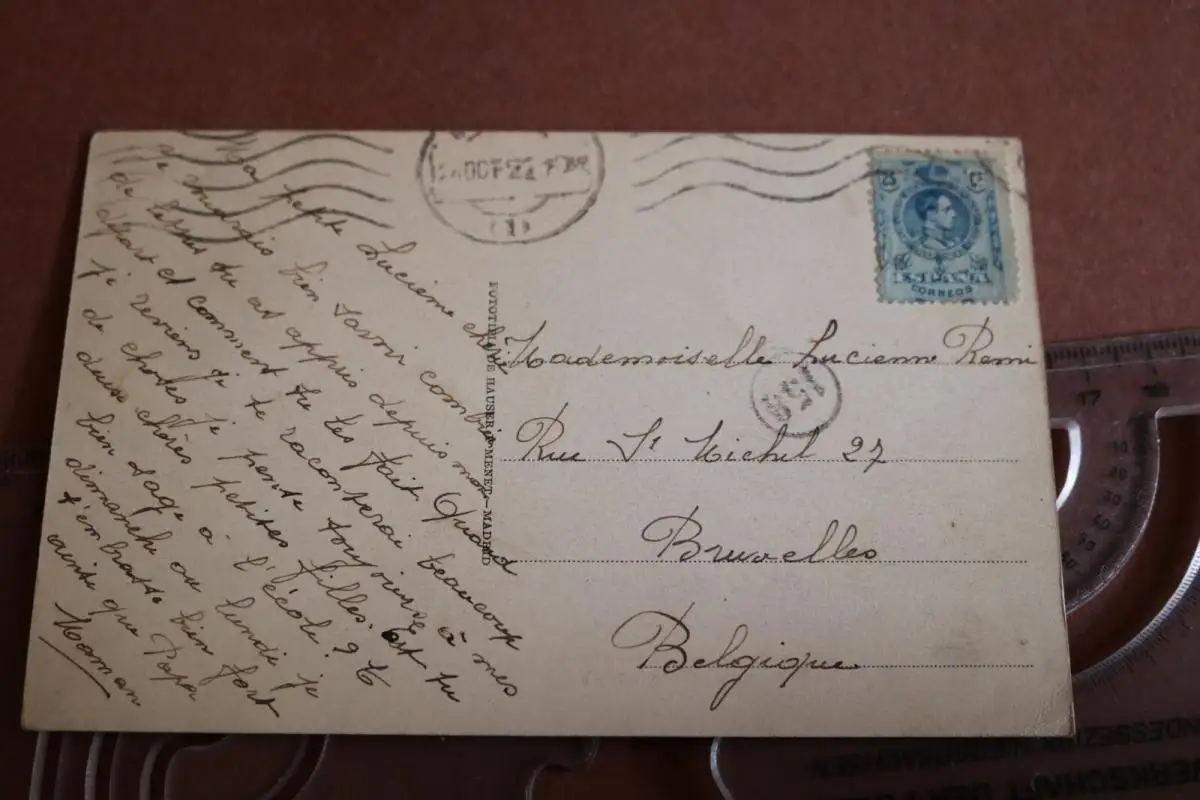 Ma petite Lucienne chérie
Je voudrais bien savoir combien
de tu as appris depuis mon
départ et comment tu les fait Quand
je reviens je te raconterai beaucoup
de choses je pense toujours à mes
deux chères petites filles. est tu
bien sage à l'école? Et
dimanche ou lundi je
t'embrasse bien fort
ainsi que Papa
Maman
OCT
(1)
25 Cs
CORREOS
FOTOTIPIA DE HAUSER Y MENET.-MADRID
Mademoiselle Lucienne Remi
Rue St Michel 27
Bruxelles
Belgique
17